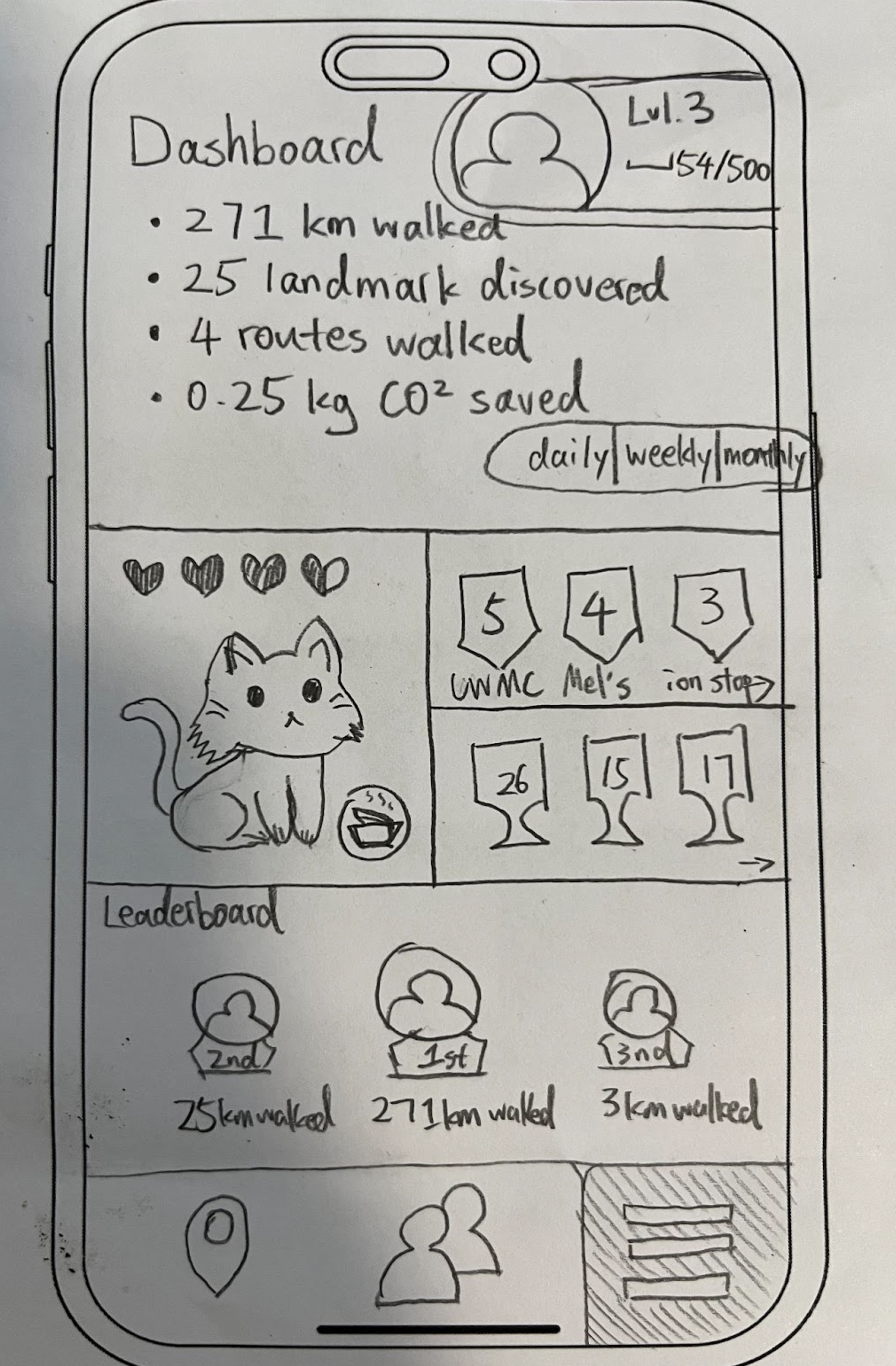 Dashboard
Lvl.3
54/500
• 271 km walked
• 25 landmark discovered
• 4 routes walked
• 0.25 kg CO² saved
daily|weekly|monthly
5 4 3
UWMC Mel's ion stop
26 15 17
Leaderboard
2nd 1st 3nd
25km walked 271km walked 3km walked